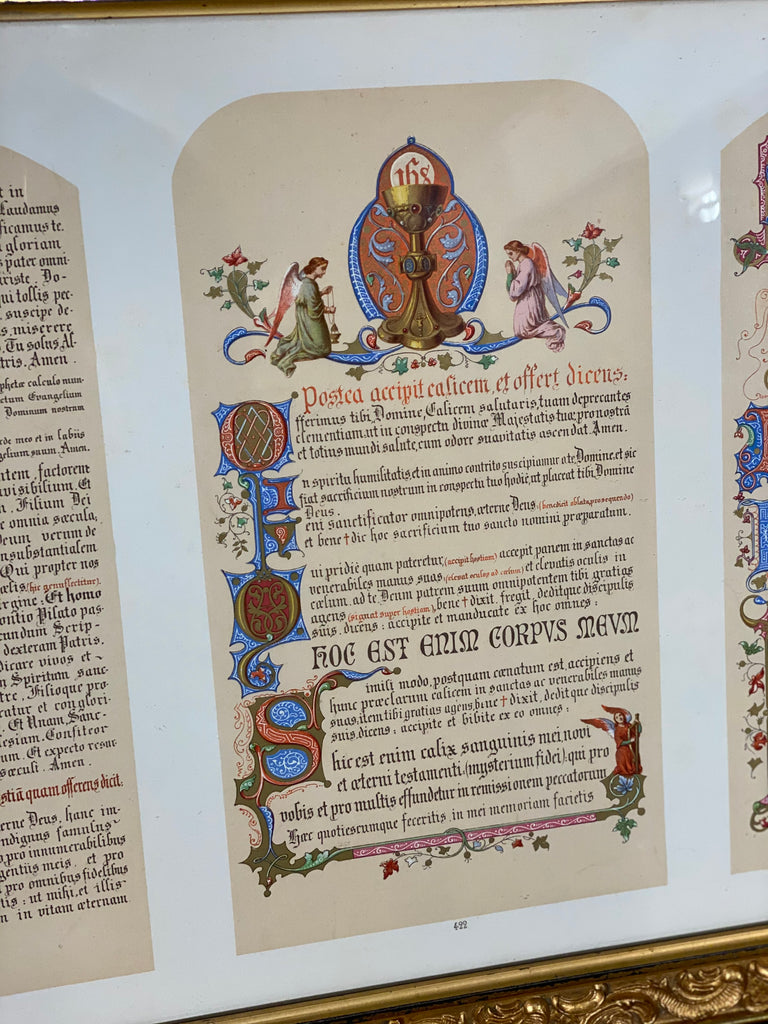 t in
Laudamus
ficamus te.
gloriam
s pater omni
riste. Do-
qui tollis pec-
suscipe de-
s, miserere
Tu solus Al-
tris. Amen.
phetæ calculo mun-
ctum Evangelium
Dominum nostrum
rde meo et in labiis
gelium suum. Amen.
ntem, factorem
visibilium. Et
Filium Dei
e omnia sæcula,
Deum verum de
nsubstantialem
Qui propter nos
cœlis (hic genuflectitur).
irgine: Et homo
ontio Pilato pas-
cundum Scrip-
dexteram Patris.
dicare vivos et
n Spiritum sanc-
tre, Filioque pro-
ratur et conglori-
Et Unam, Sanc-
lesiam. Confiteor
um. Et expecto resur
sæculi. Amen.
stiā quam offerens dicit.
erne Deus, hanc im-
ndignus famulus
o, pro innumerabilibus
gentiis meis, et pro
pro omnibus fidelibus
tis: ut mihi, et illis
n in vitam æternam
ihs
Postea accipit calicem, et offert dicens:
Offerimus tibi, Domine, Calicem salutaris, tuam deprecantes
clementiam, ut in conspectu divinæ Majestatis tuæ, pro nostrā
et totius mundi salute, cum odore suavitatis ascendat. Amen.
In spiritu humilitatis et in animo contrito suscipiamur a te, Domine, et sic
fiat sacrificium nostrum in conspectu tuo hodie, ut placeat tibi, Domine
Deus.
Veni sanctificator omnipotens, æterne Deus (benedicit oblata, prosequendo)
et bene † dic hoc sacrificium tuo sancto nomini præparatum.
Qui pridiè quam pateretur, (accipit hostiam) accepit panem in sanctas ac
venerabiles manus suas (elevat oculos ad cœlum) et elevatis oculis in
cœlum, ad te Deum patrem suum omnipotentem tibi gratias
agens (signat super hostiam), bene † dixit, fregit, deditque discipulis
suis, dicens: accipite et manducate ex hoc omnes:
HOC EST ENIM CORPVS MEVM
Simili modo, postquam cœnatum est, accipiens et
hunc præclarum calicem in sanctas ac venerabiles manus
suas, item tibi gratias agens, bene † dixit, dedit que discipulis
suis, dicens: accipite et bibite ex eo omnes:
hic est enim calix sanguinis mei, novi
et æterni testamenti, (mysterium fidei), qui pro
vobis et pro multis effundetur in remissionem peccatorum
Hæc quotiescumque feceritis, in mei memoriam facietis
422